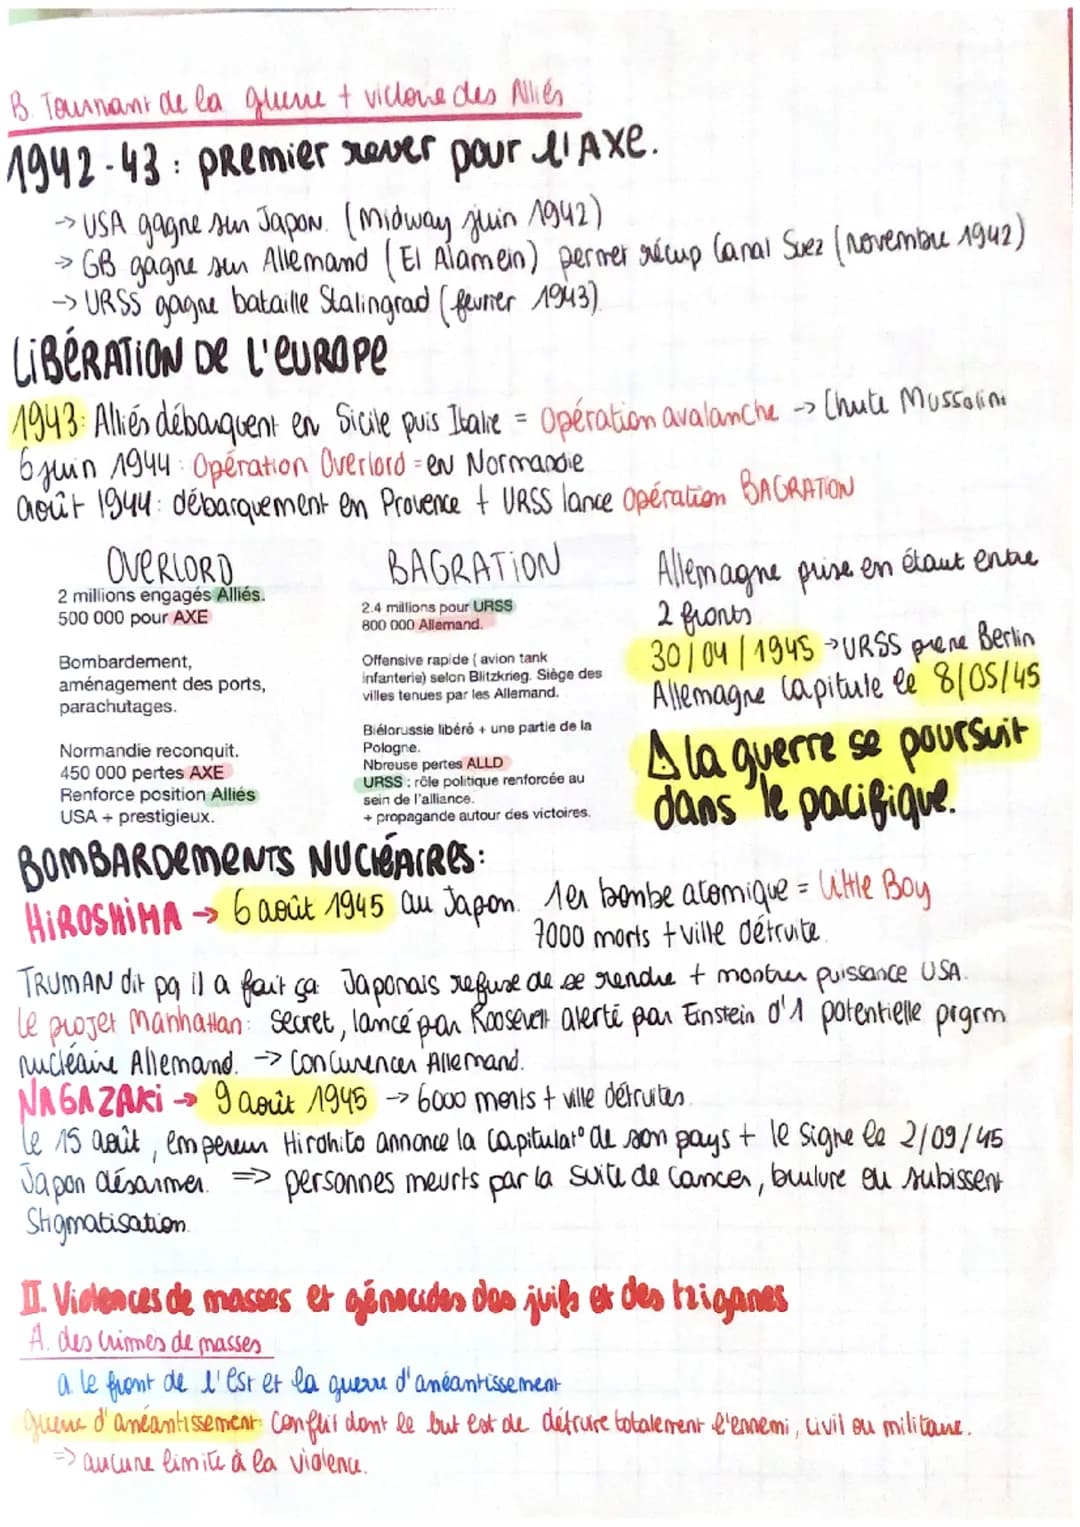 B. Tournant de la guerre + victoire des Alliés
1942-43 : premier rever pour l'AXE.
-> USA gagne sur Japon. (Midway juin 1942)
-> GB gagne sur Allemand (El Alamein) permet récup Canal Suez (novembre 1942)
-> URSS gagne bataille Stalingrad (fevrier 1943).
LIBÉRATION DE L'EUROPE
1943: Alliés débarquent en Sicile puis Italie = Opération avalanche -> Chute Mussolini
6 juin 1944 : Opération Overlord = en Normandie
août 1944: débarquement en Provence + URSS lance Opération BAGRATION
OVERLORD
2 millions engagés Alliés.
500 000 pour AXE
Bombardement,
aménagement des ports,
parachutages.
Normandie reconquit.
450 000 pertes AXE
Renforce position Alliés
USA + prestigieux.
BAGRATION
2.4 millions pour URSS
800 000 Allemand.
Offensive rapide ( avion tank
infanterie) selon Blitzkrieg. Siège des
villes tenues par les Allemand.
Biélorussie libéré + une partie de la
Pologne.
Nbreuse pertes ALLD
URSS : rôle politique renforcée au
sein de l'alliance.
+ propagande autour des victoires.
Allemagne prise en étaut entre
2 fronts
30/04/1945 -> URSS prend Berlin
Allemagne Capitule le 8/05/45
⚠ la guerre se poursuit
dans le pacifique.
BOMBARDEMENTS NUCLÉAIRES:
HIROSHIMA -> 6 août 1945 au Japon. 1er bombe atomique = Little Boy
7000 morts + ville détruite.
TRUMAN dit pq il a fait ça Japonais refuse de se rendre + montrer puissance USA.
Le projet Manhattan: Secret, lancé par Roosevelt alerté par Einstein d'1 potentielle prgrm
nucléaire Allemand. -> Concurencer Allemand.
NAGAZAKI -> 9 août 1945 -> 6000 morts + ville détruites.
Le 15 août, empereur Hirohito annonce la capitulat° de son pays + le signe le 2/09/45
Japon désarmer. => personnes meurts par la suite de Cancer, brulure ou subissent
Stigmatisation.
II. Violences de masses et génocides des juifs et des tziganes
A. des crimes de masses
a. le front de l'est et la guerre d'anéantissement
guerre d'anéantissement: Conflit dont le but est de détruire totalement l'ennemi, civil ou militaire.
=> aucune limite à la violence.